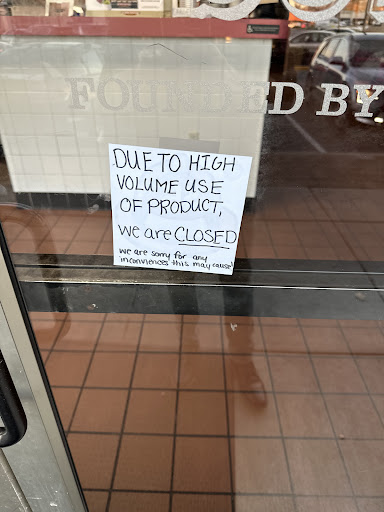 FOUNDED BY
DUE TO HIGH
VOLUME USE
OF PRODUCT,
we are CLOSED
we are sorry for any
inconviences this may cause!